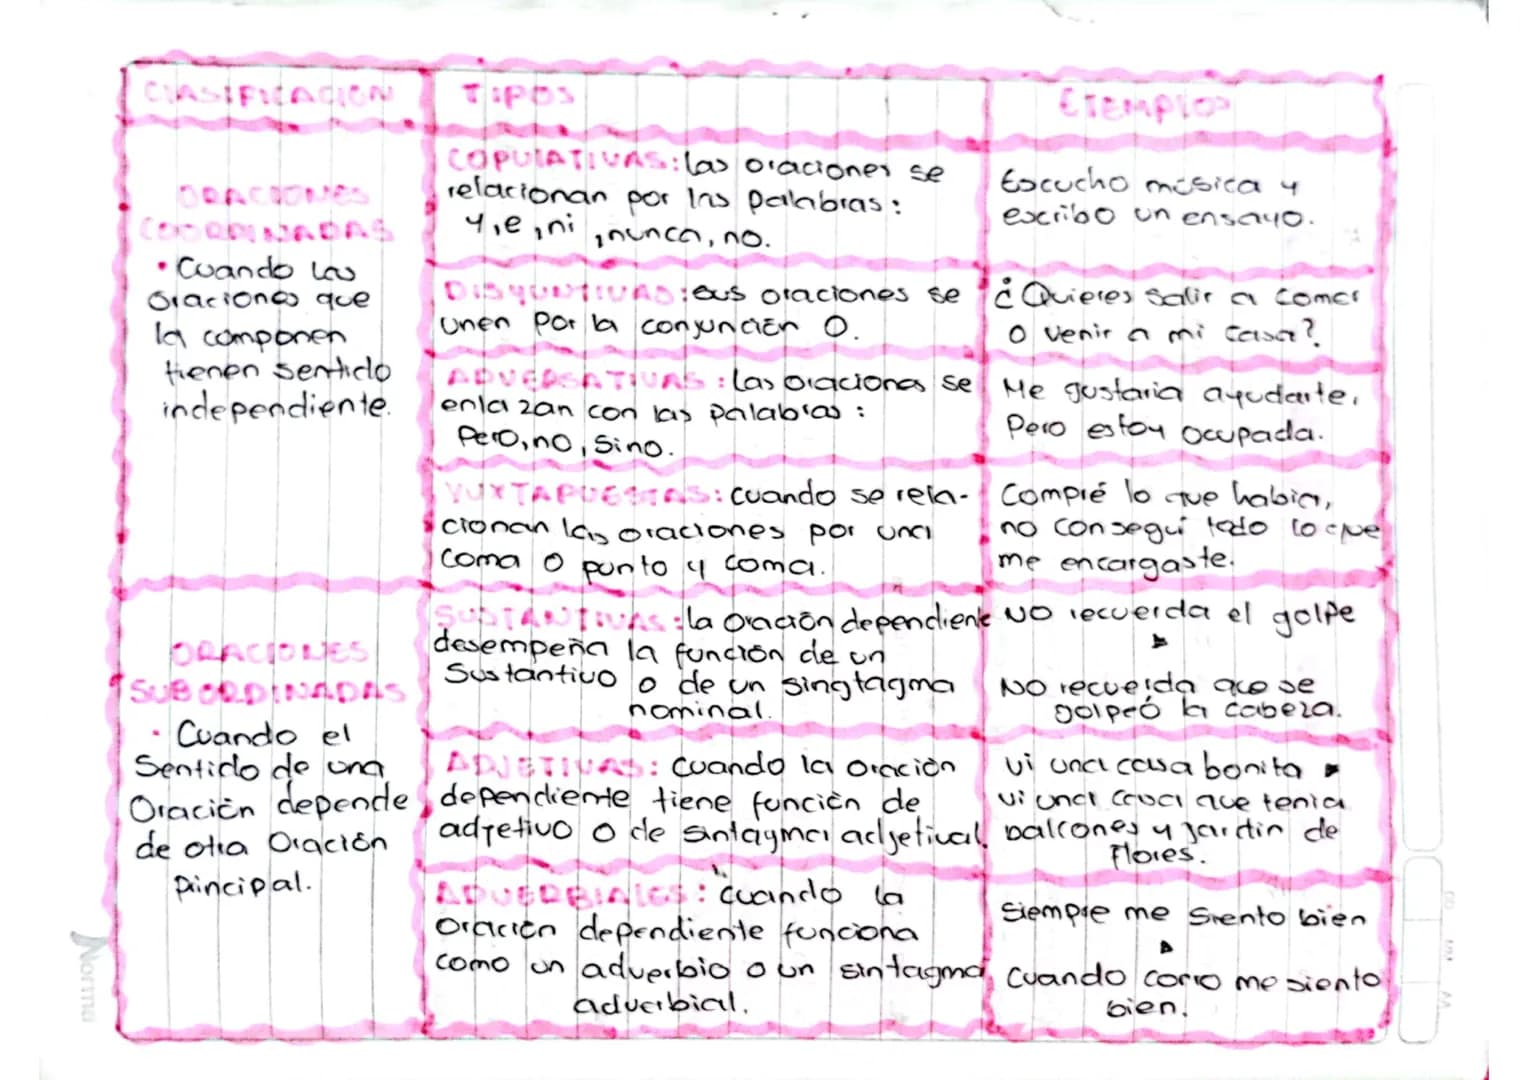 CLASIFICACION
TIPOS
EJEMPLOS
ORACIONES
COORDINADAS
• Cuando las
oraciones que
la componen
tienen sentido
independiente.
COPULATIVAS: las oraciones se
relacionan por las palabras:
y, e, ni, nunca, no.
Escucho música y
escribo un ensayo.
DISYUNTIVAS: sus oraciones se
unen por la conjunción O.
¿Quieres salir a comer
o venir a mi casa?
ADVERSATIVAS: las oraciones se
enlazan con las palabras:
Pero, no, sino.
Me gustaria ayudarte,
Pero estoy ocupada.
YUXTAPUESTAS: cuando se rela-
cionan las oraciones por una
coma o punto y coma.
Compré lo que habia,
no conseguí todo lo que
me encargaste.
ORACIONES
SUBORDINADAS
• Cuando el
Sentido de una
Oración depende
de otra Oración
principal.
SUSTANTIVAS: la oración dependiente
desempeña la función de un
Sustantivo o de un singtagma
nominal.
NO recuerda el golpe
NO recuerda que se
golpeó la cabeza.
ADJETIVAS: cuando la oración
dependiente tiene función de
adjetivo o de sintagma adjetival.
Vi una casa bonita
vi una casa que tenia
balcones y jardin de
flores.
ADVERBIALES: cuando la
Oración dependiente funciona
como un adverbio o un sintagma
adverbial.
Siempre me siento bien
Cuando corro me siento
bien.
Norma